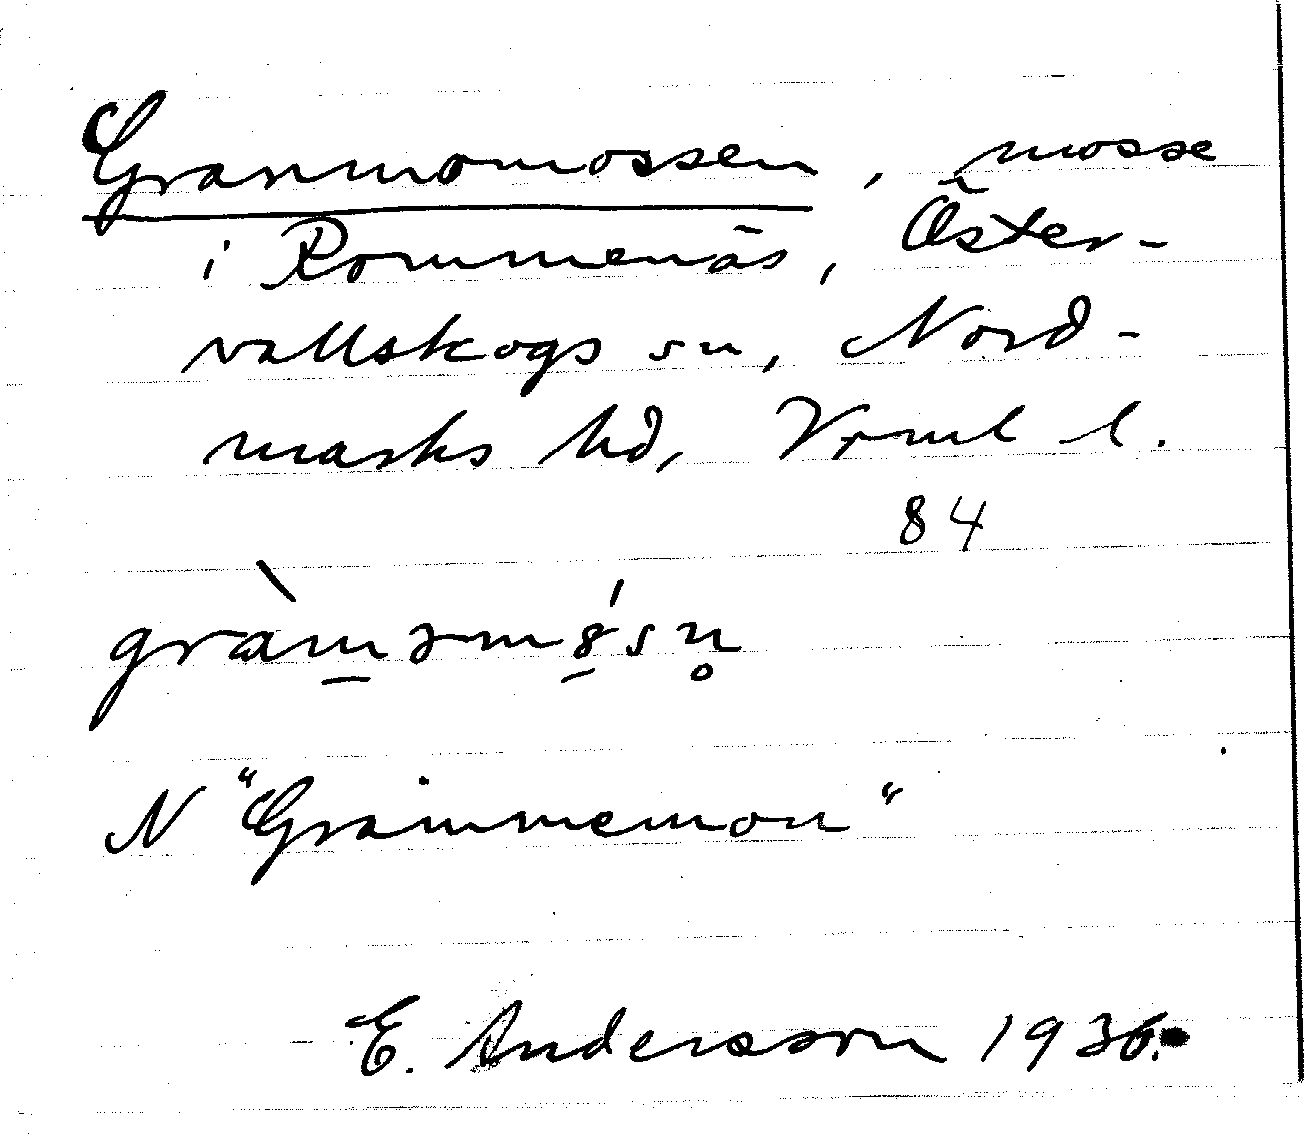 Granmomossen, mosse
i Rommenäs, Öster-
vallskogs sn, Nord-
marks hd, Vrml l.
84
gràm̲əmó̲sn̥
N "Grammemon"
E. Andersson 1936.